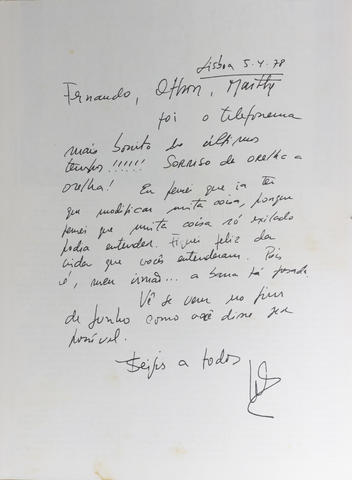 Lisboa 5.4.78
Fernando, Othon, Marthy
foi o telefonema
mais bonito dos últimos
tempos!!!!!! SORRISO de orelha a
orelha! Eu pensei que ia ter
que modificar muita coisa, porque
pensei que muita coisa só exilado
podia entender. Fiquei feliz da
vida que vocês entenderam. Pois
é, meu irmão... a barra tá pesada
Vê se vem no fim
de Junho como você disse ser
possível.
Beijos a todos